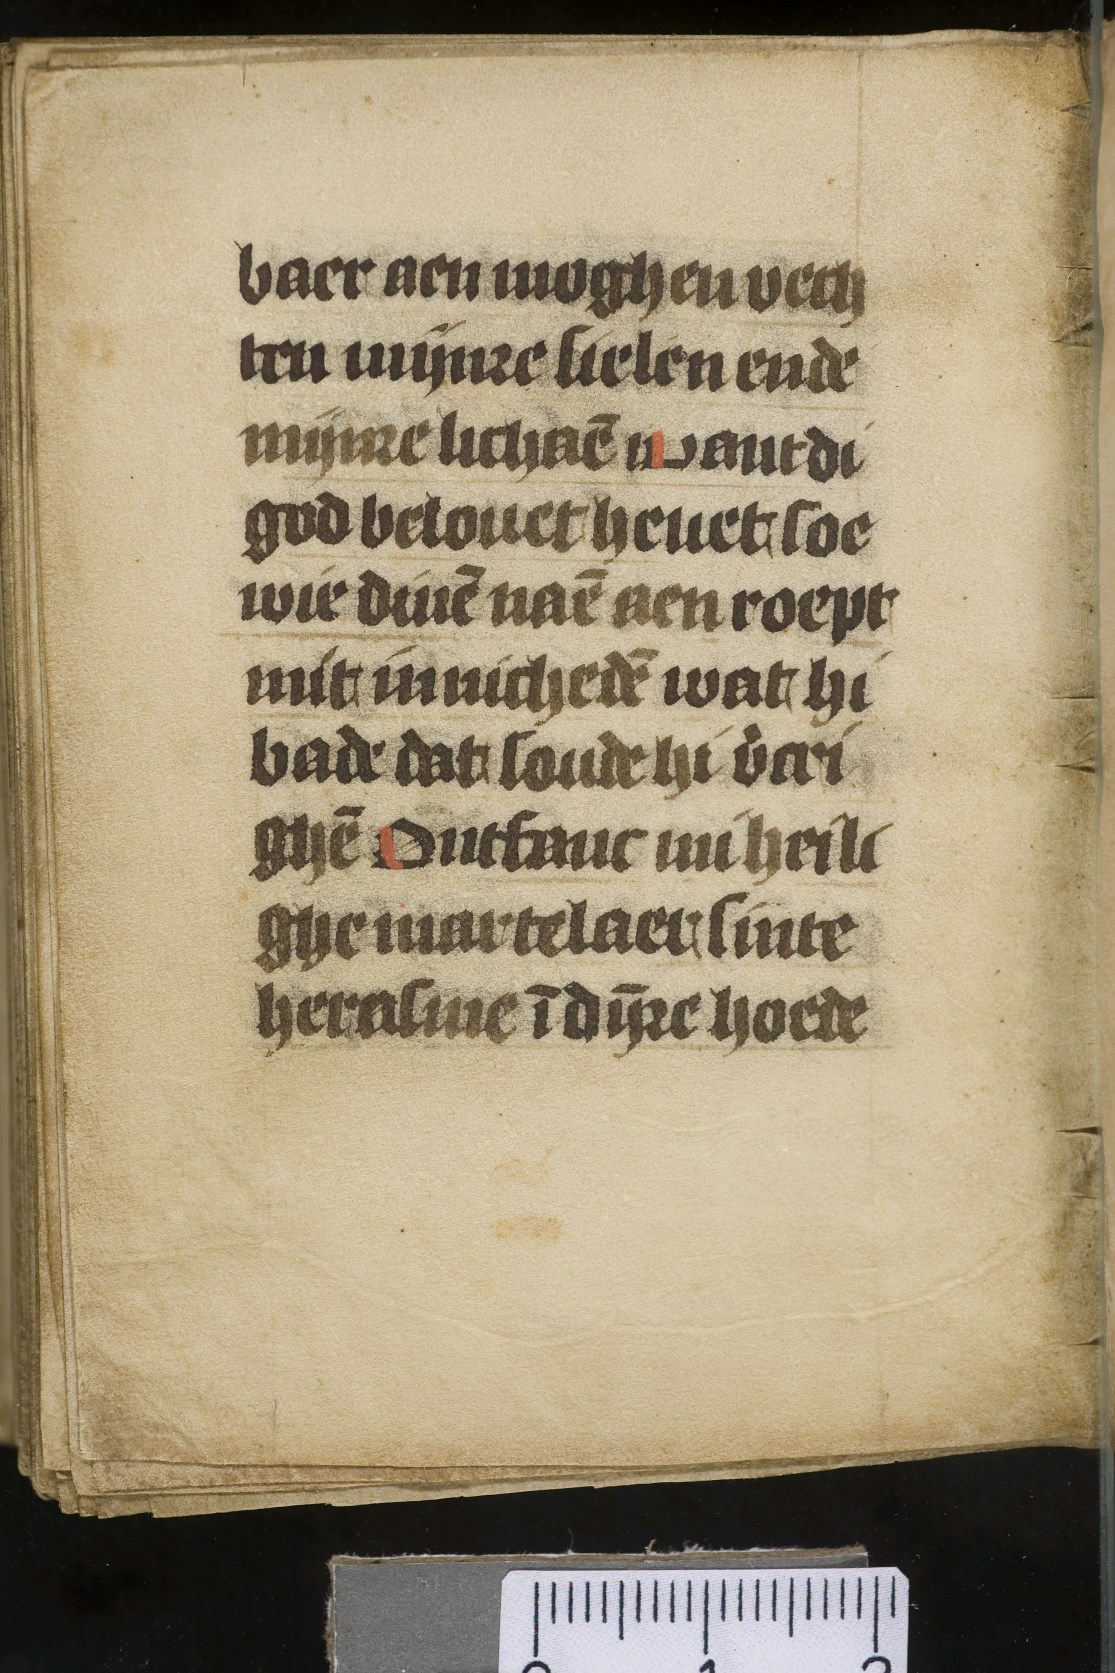 baer aen moghen vech
ten mijnre sielen ende
mijnre lichaē want di
god belouet heuet soe
wie dinē naē aen roept
mit innichedē wat hi
bade dat soude hi v̄cri
ghē Ontfanc mi heili
ghe martelaer sinte
herasme ī dijn̄re hoede
0 1 2